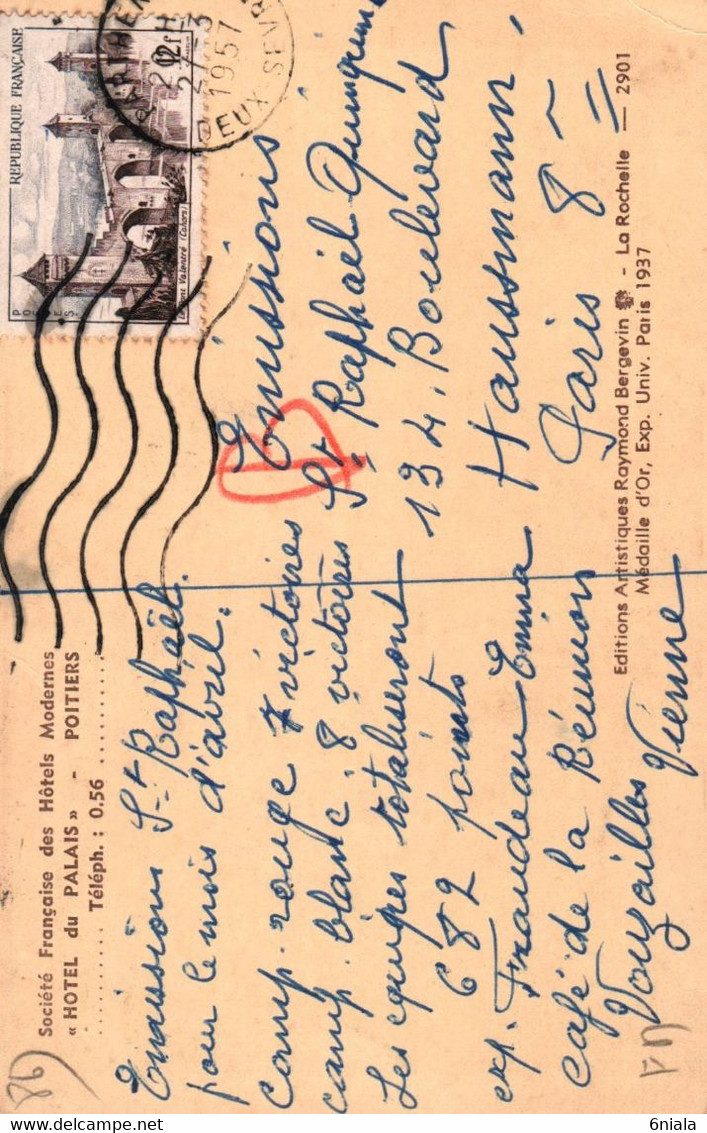 Société Française des Hôtels Modernes
« HOTEL du PALAIS » - POITIERS
Téléph. : 0.56
Emissions St Raphaël.
pour le mois d'avril.
camp. rouge 7 victoires
camp. blanc. 8 victoires
Les equipes totaliseront
682 points
exp. Emma
café de la Réunion
Vouzailles Vienne
REPUBLIQUE FRANÇAISE
12f
POSTES
Valentré (Cahors)
27-3
1957
DEUX-SEVRES
Emissions
St Raphaël Quinquina
134. Boulevard
Haussmann.
Paris 8
Editions Artistiques Raymond Bergevin - La Rochelle — 2901
Médaille d'Or, Exp. Univ. Paris 1937
86
6niala